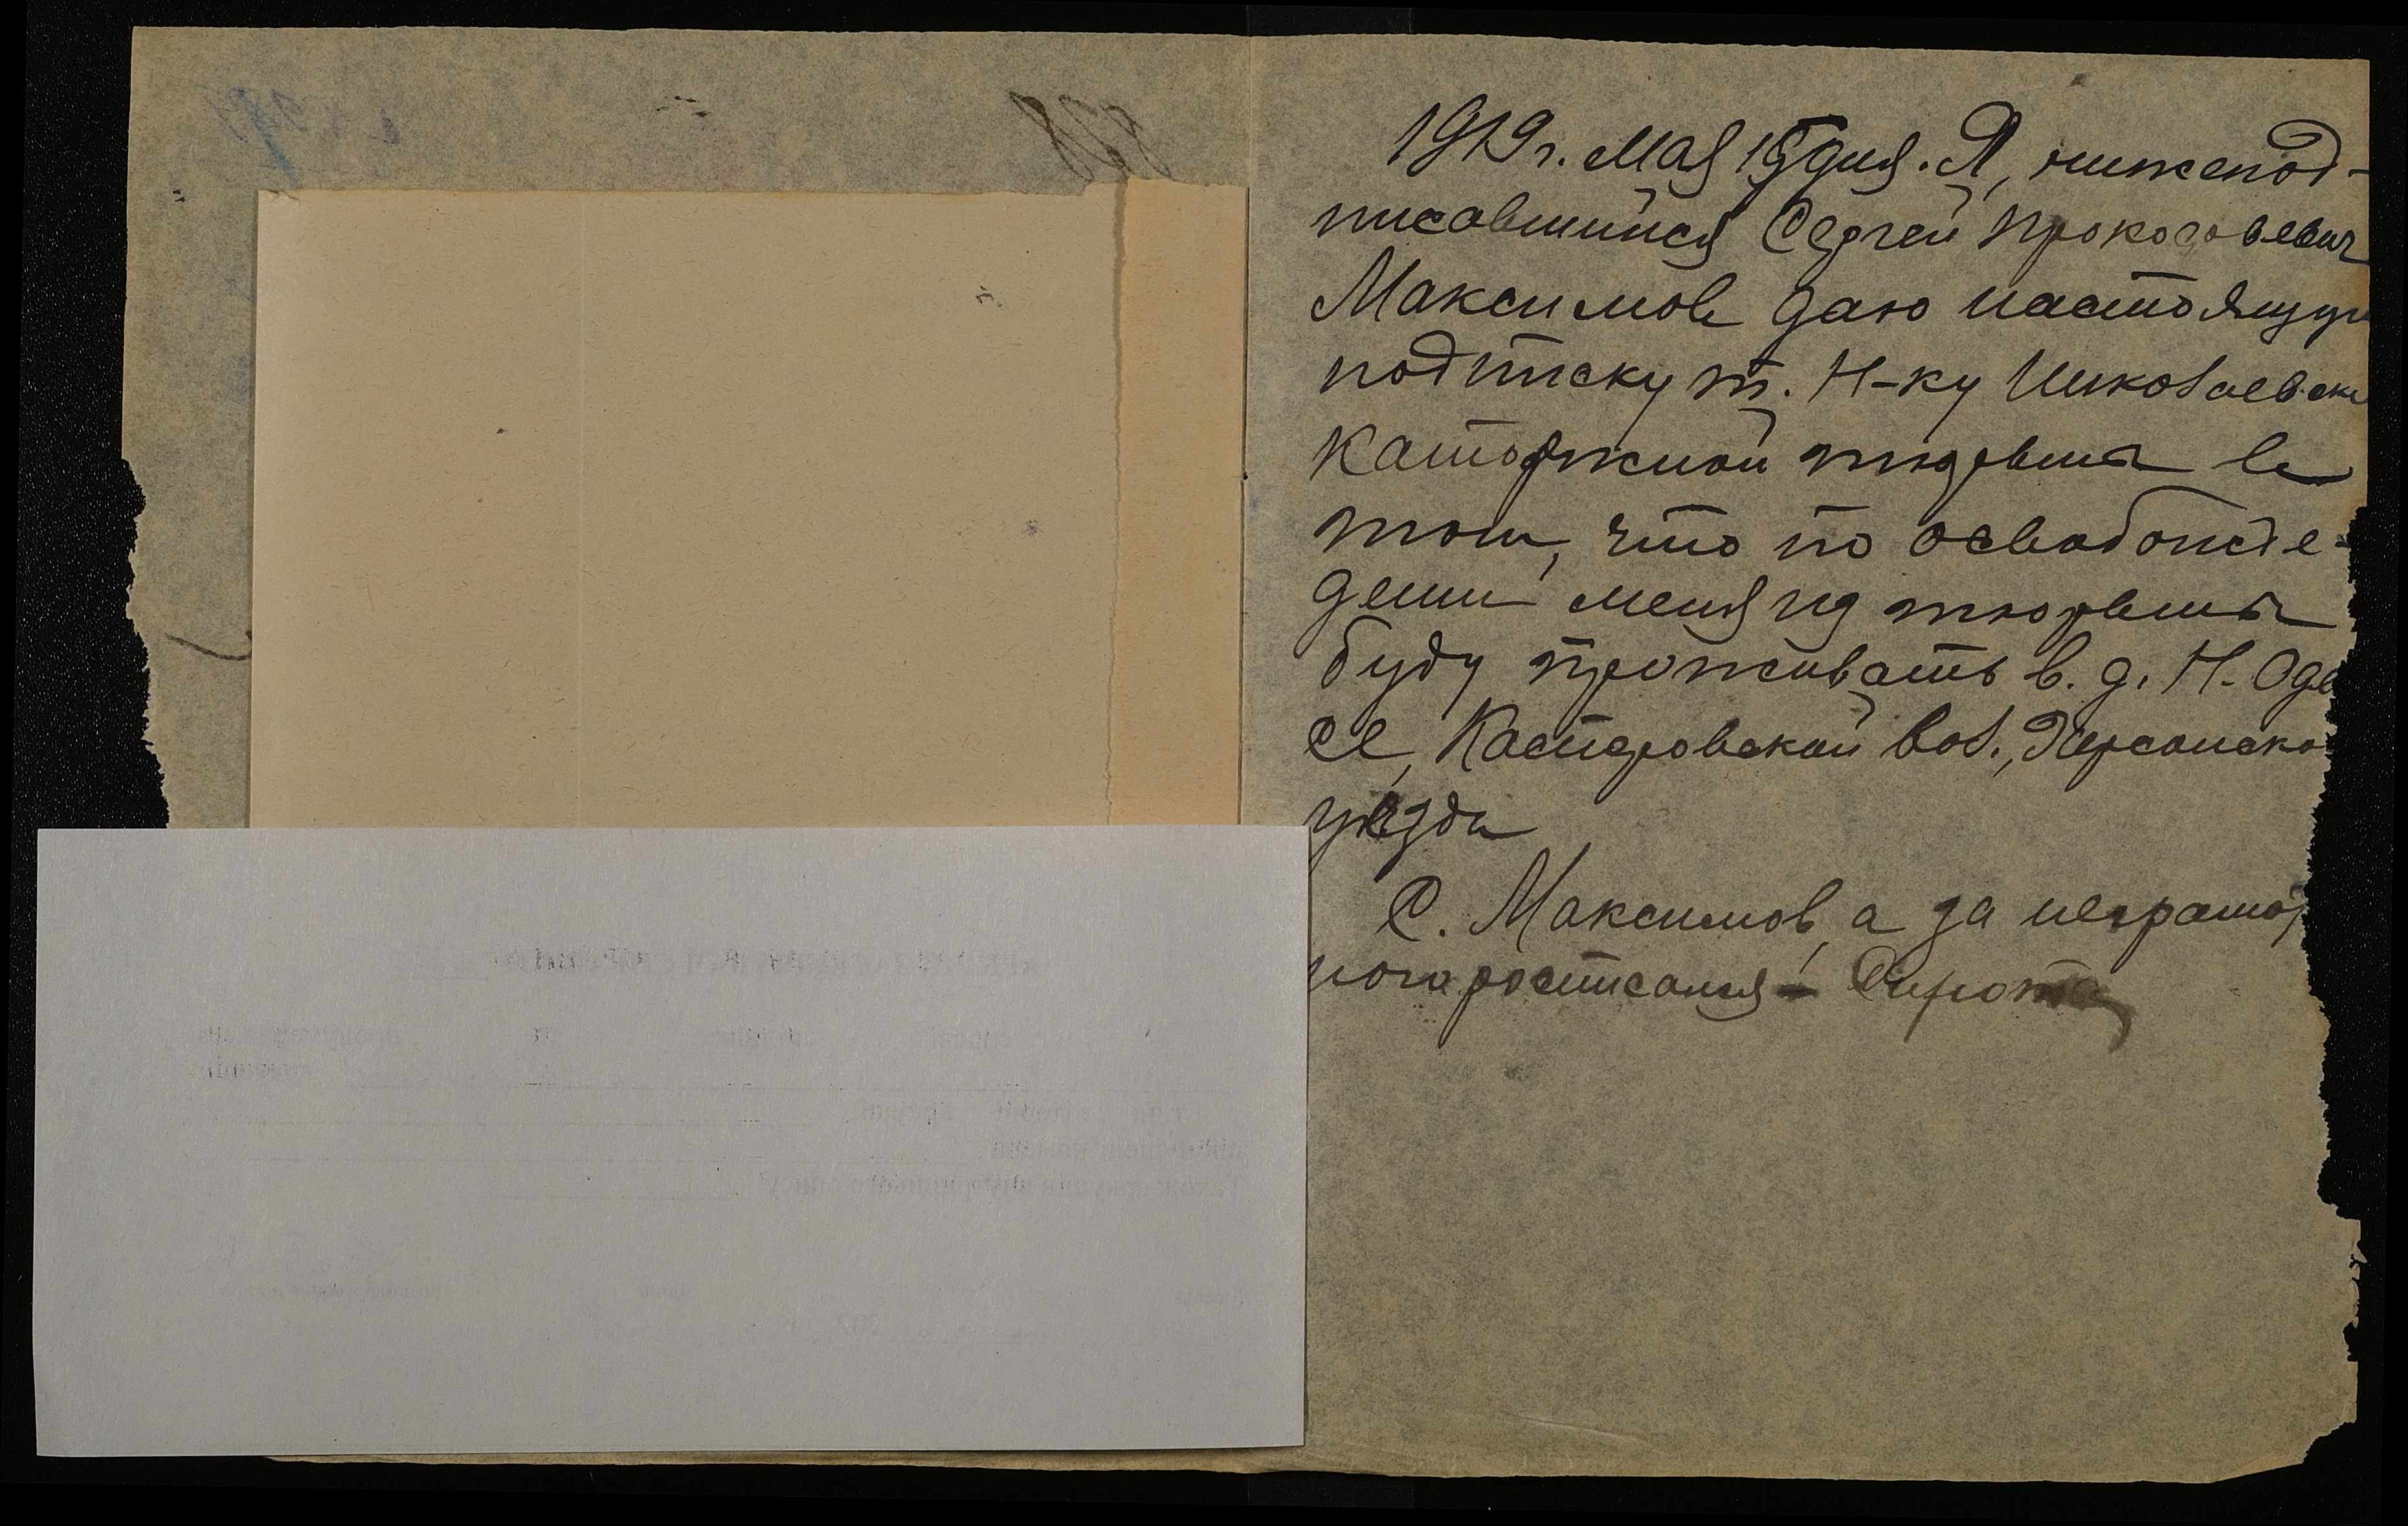 1919 г. Мая 15 дня. Я, нижепод-
писавшийся Сергей
Максимов даю настоящую
подписку т. Н-ку Николаевск
Каторжной тюрьмы в
том, что по освобожде-
дении меня из тюрьмы
буду проживать в. д. Н. Оде
се, Касперовской вол., Херсонско
уезда
С. Максимов, а за неграмот
ного росписался – Сирота
828